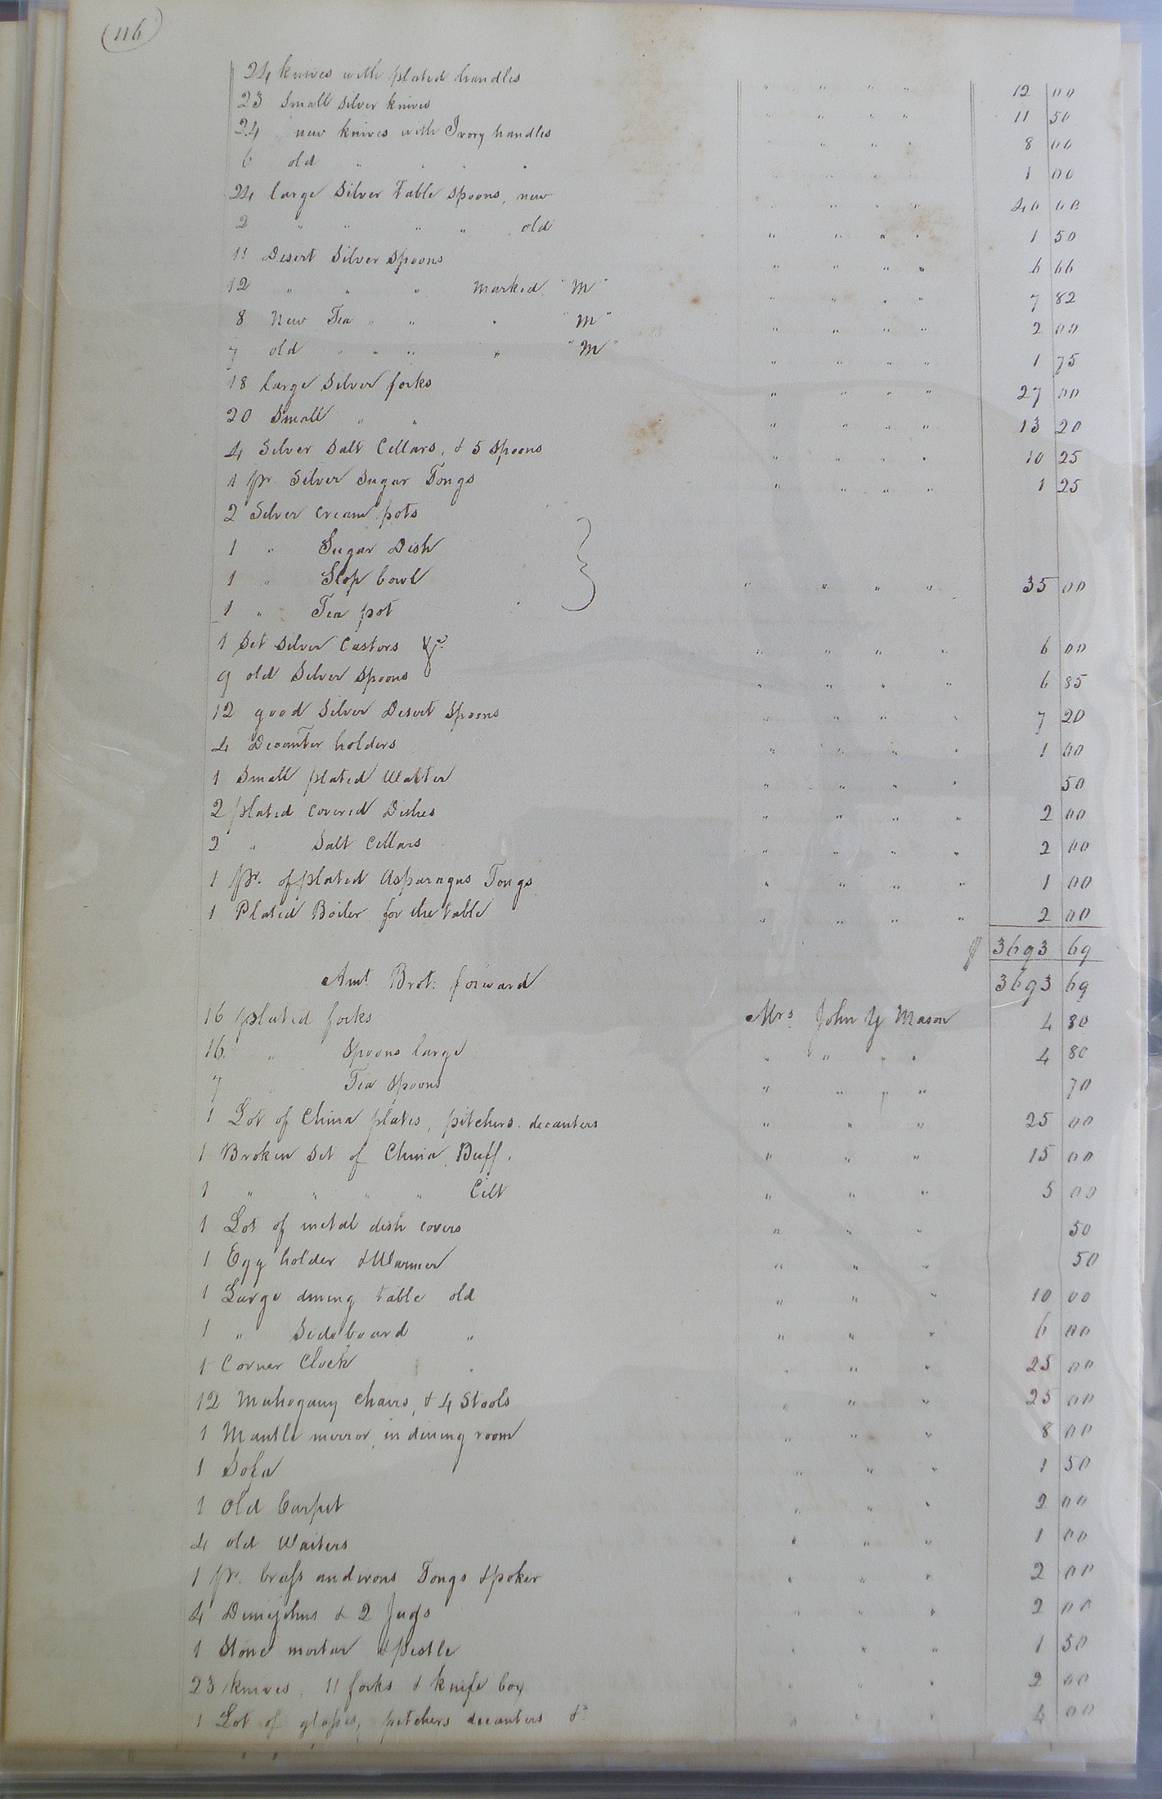 (116)
24 knives with plated handles " " " " 12 00
23 Small Silver knives " " " " 11 50
24 new knives with Ivory handles " " " 8 00
6 old " " " " 1 00
24 large Silver Table Spoons, new " " " " 40 00
2 " " " " old " " " " 1 50
11 Desert Silver Spoons " " " " 6 66
12 " " " Marked "M" " " " " 7 82
8 New Tea " " " "M" " " " " 2 00
7 old " " " " "M" " " " " 1 75
18 large Silver forks " " " " 27 00
20 Small " " " " " " 13 20
4 Silver Salt Cellars, & 5 Spoons " " " " 10 25
1 pr. Silver Sugar Tongs " " " " 1 25
2 Silver Cream pots
1 " Sugar Dish
1 " Slop bowl " " " " 35 00
1 " Tea pot
1 Set Silver Castors &c " " " " 6 00
9 old Silver Spoons " " " " 6 85
12 good Silver Desert Spoons " " " " 7 20
4 Decanter holders " " " " 1 00
1 Small plated Waiter " " " " 50
2 plated Covered Dishes " " " " 2 00
2 " Salt Cellars " " " " 2 00
1 pr. of plated Asparagus Tongs " " " " 1 00
1 Plated Boiler for the table " " " " 2 00
$ 3693 69
Amt. Brot. forward 3693 69
16 plated forks Mrs John Y Mason 4 80
16 " Spoons large " " " " 4 80
7 " Tea Spoons " " " " 70
1 Lot of China plates, pitchers, decanters " " " 25 00
1 Broken Set of China, Buff. " " " 15 00
1 " " " " Gilt " " " 5 00
1 Lot of metal dish covers " " " 50
1 Egg holder & Warmer " " " 50
1 Large dining table old " " " 10 00
1 " Sideboard " " " " 6 00
1 Corner Clock " " " " 25 00
12 Mahogany Chairs, & 4 Stools " " " 25 00
1 Mantle mirror, in dining room " " " 8 00
1 Sofa " " " 1 50
1 Old Carpet " " " 2 00
4 old Waiters " " " 1 00
1 pr. brass andirons Tongs & poker " " " 2 00
4 Demijohns & 2 Jugs " " " 2 00
1 Stone mortar & pestle " " " 1 50
23 knives, 11 forks & knife box " " " 2 00
1 Lot of glasses, pitchers decanters &c " " " 4 00